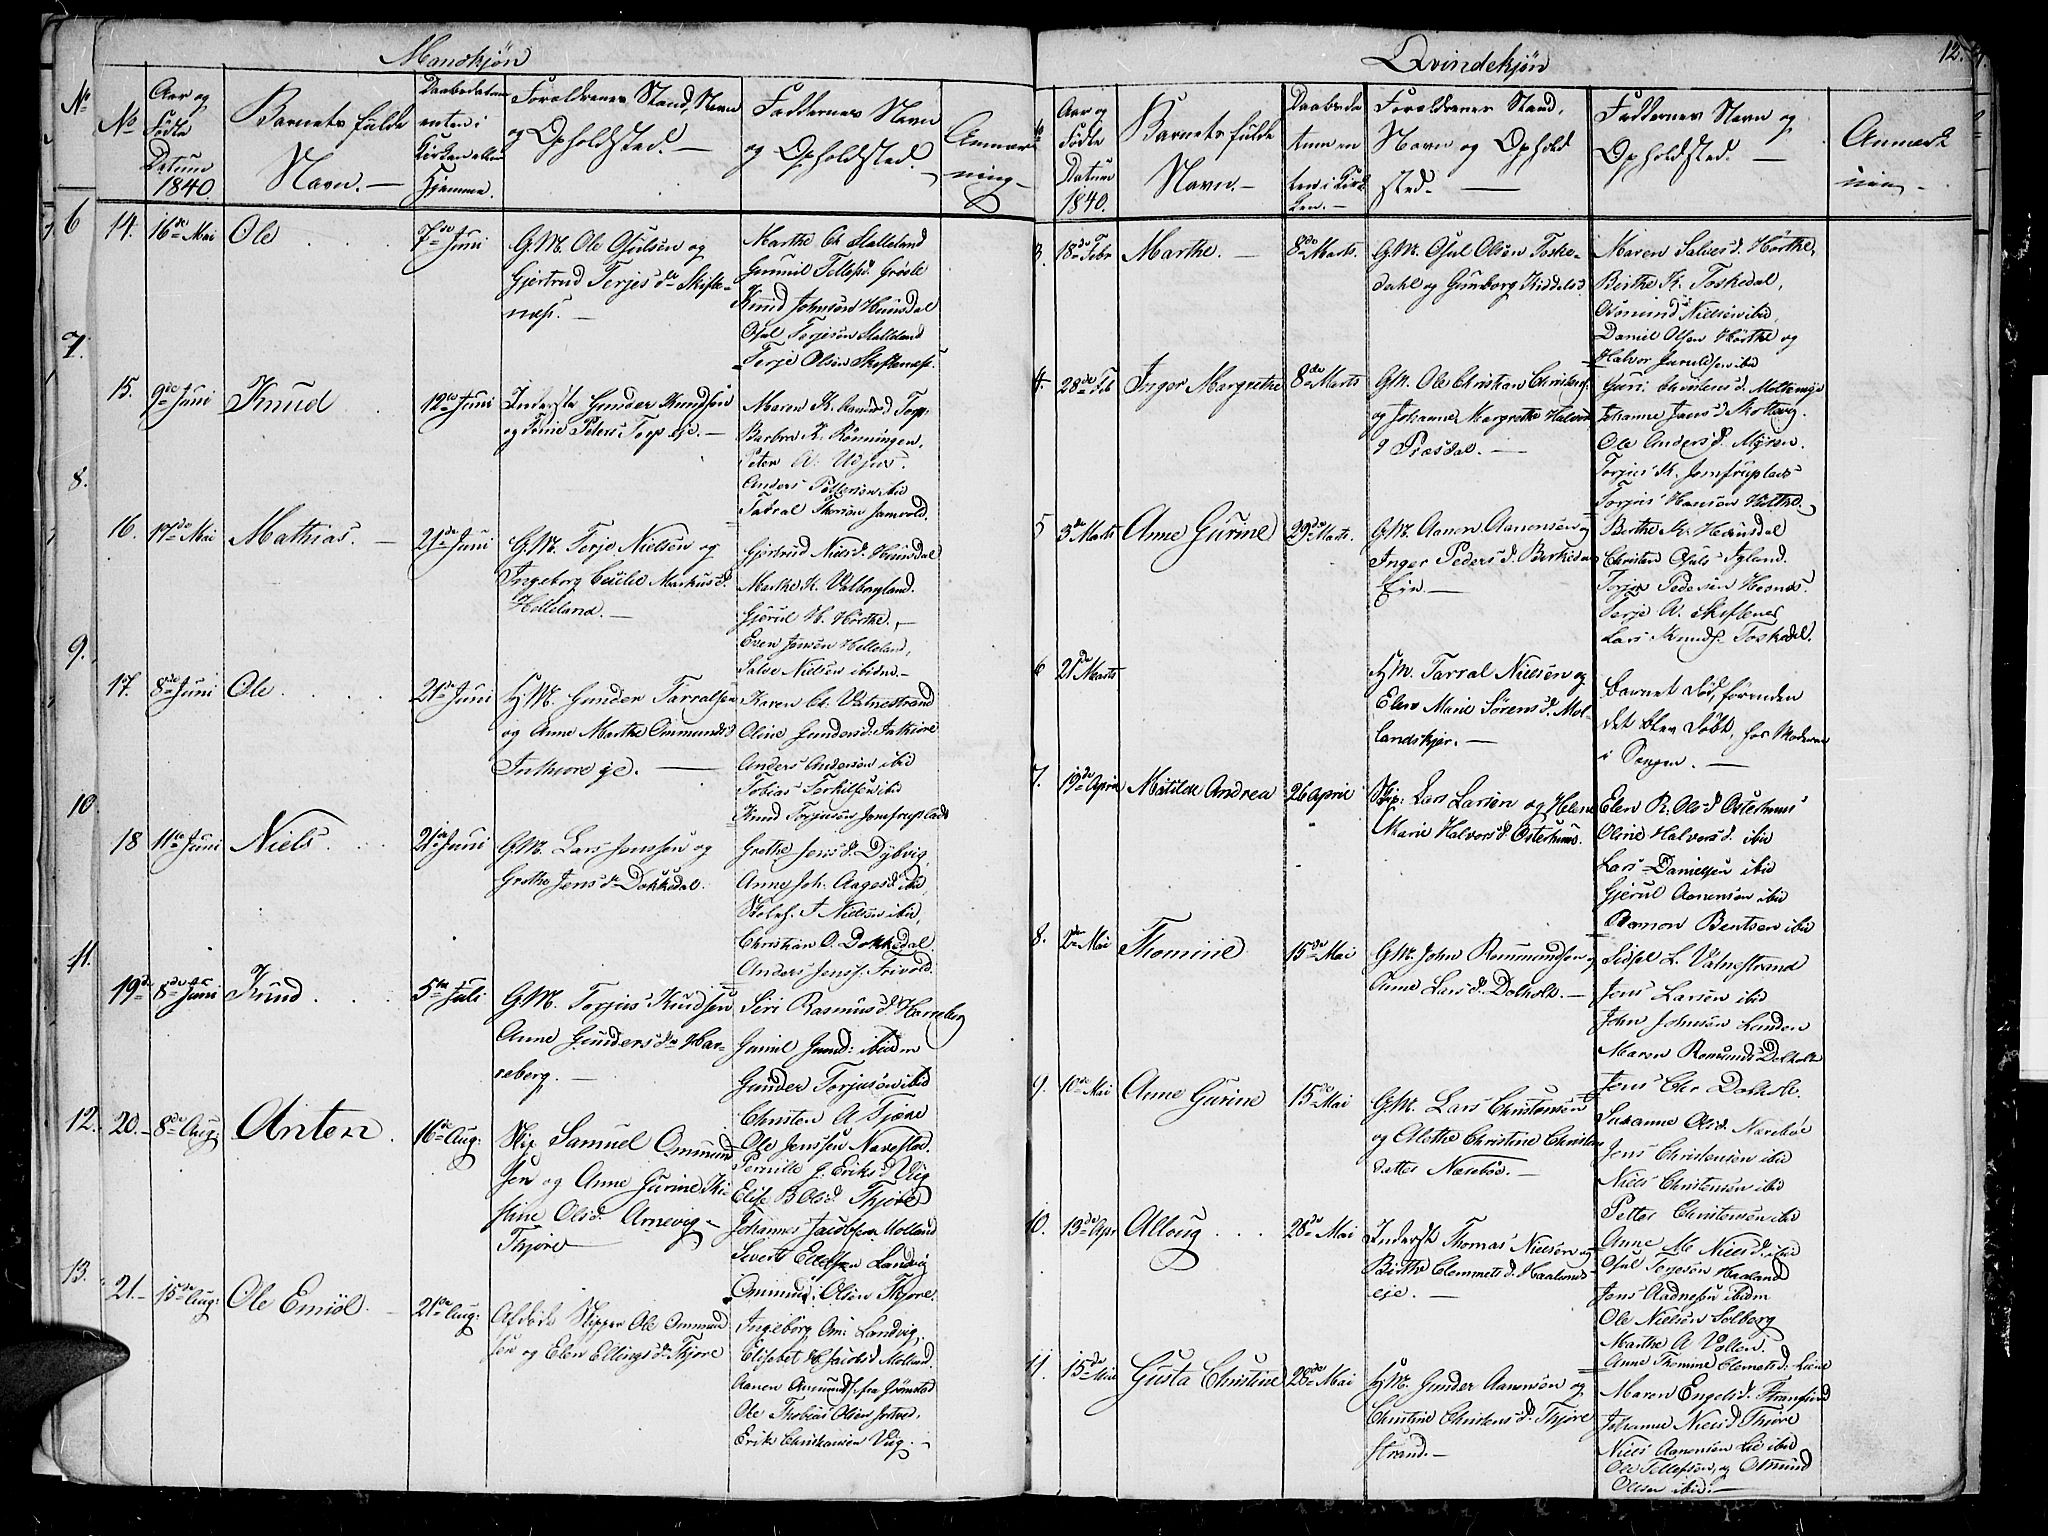 Mandkjøn
No
Aar og
Födte
Datum
1840.
Barnets fulde
Navn. —
Daabsdatum
enten i
Kirken eller
Hjemme.
Forældrenes Stand, Navn
og Opholdsted. —
Faddernes Navn
og Opholdsted.
Anmærk
ning. —
14. 16de Mai
Ole
7de Juni
G.M. Ole Gjulsen og
Gjertrud Terjesd.
Marthe Ch. Stalleland
Knud Johnsen Heinsdal
Osul Terjesen Stalleland
Terje Olsen
15. 9de Juni
Knud
12te Juni
Inderste Gunder Knudsen
Maren K. Torp.
Barbro K. Rönningen,
Peter A. Udjus.
Anders Pettersen ibid
16. 17de Mai
Mathias. —
21de Juni
G.M. Terje Nielsen og
Ingeborg Cecilie Markusd.
Helleland. —
Gjertrud Nielsd. Heinsdal
Marthe K. Valborgland.
Gjerul H. Hörthe. —
Even Jensen Helleland,
Salve Nielsen ibidm. —
17. 8de Juni
Ole
21de Juni
H.M. Gunder Tarralsen
og Anne Marthe Ommundsd.
Inthiore eje. —
Karen Ch. Vatnestrand
Oline Gundersd. Inthiore
Anders Andersen ibid
Tobias Terkilsen ibid
Knud Terjesen Jomfruplads
18 11te Juni
Niels.
21de Juni
G.M. Lars Jenssen og
Grethe Jensd. Dokkedal.
Grethe Jensd. Dybvig,
Anne Joh. Aagesd. ibid,
Nielsen ibid,
Christian O. Dokkedal
Anders Jenss. Frivold.
19de 8de Juni
Knud
5te Juli
G.M. Torjus Knudsen
Anne Gundersd. Har-
reberg. —
Siri Rasmusd. Harreberg
Gunder Torjusen ibid
Christen A. Tjøre
20. 8de Aug.
Anten
16de Aug:
Skip. Samuel Ommund
sen og Anne Gurine Kri
stine Olsd. Arnevig —
Thjøre
Ole Jenssen Navestad.
Pernille G. Eriksd. Viig
Elise B. Olsd. Thjøre
Johannes Jacobsen Molland
Severt Ellefsen Landvig
Ommund Olsen Thjøre.
21. 15de Aug:
Ole Emiöl. —
21de Aug:
Afdøde Skipper Ole Ommund
sen og Elen Ellingsd. Thjøre
Ingeborg Om: Landvig,
Elisabet H. Jacobsd. Molland.
Aanen Ommunds. fra Grimstad
Ole Thobias Olsen
Erik Christiansen Viig. —
6
7.
8.
9.
10
11.
12.
13.
Qvindekjön
12.
Aar og
Födte
Datum
1840.
Barnets fulde
Navn. —
Daabsda
tum en
ten i Kir
ken. —
Forældrenes Stand,
Navn og Ophold
sted. —
Faddernes Navn og
Opholdsted. —
Anmærk
ning —
3. 18de Febr
Marthe. —
8de Marts.
G.M. Osul Olsen Toske-
dahl og Gunborg Kiddelsd.
Maren Salvesd. Hörthe,
Birthe K. Toskedal,
Osmund Nielsen ibid,
Daniel Olsen Hörthe og
Halvor ibid
4. 28de Feb
Inger Margrethe
8de Marts
G.M. Ole Christian Christens.
og Johanne Margrethe Halvors
d Præsdal. —
Johanne Jensd. Skottevig.
Ole Andersd. Myren.
Torjus K. Jomfruplads
Torjus Hansen Hörthe. —
5 3de Marts
Anne Gurine
29de Marts.
G.M. Aanen Aanensen og
Inger Pedersd. Birkedal
Eie. —
Birthe K. Heinsdal
Christen Osuls. Igland
Torjus Pedersen Hesnes.
Terje A. Skiftenes
Lars Knuds. Toskedal.
6 21de Marts
H.M. Tarral Nielsen og
Elen Marie Sörensd. Mol-
landskjær. —
barnet död, förenden
det blev döbt, hos Moderen
i Sengen. —
7. 19de April
Matilde Andrea
26 April
Skip: Lars Larsen og Helene
Marie Halvorsd. Osterhuus.
Elen R. Olsd. Osterhuus
Oline Halvorsd. ibid
Lars Danielsen ibid
Gjerul Aanensen ibid
Ramon Bentsen ibid
8. 2den Mai
Thomine
15de Mai
G.M. John Rommundsen og
Anne Larsd. Dolholt. —
Sidsel L. Vatnestrand
Jens Larsen ibid
John Johnsen Landen
Maren Romunds. Dolholt
Jens Chr Dolholt.
9. 10de Mai
Anne Gurine
15de Mai
G.M. Lars Christensen
og Alethe Christine Christens
datter Næsebøe. —
Susanne Olsd. Næsebøe
Jens Christensen ibid
Niels Christensen ibid
Petter Christensen ibid
Anne M. Nielsd. ibid
10. 13de Apr
Alloug
28de Mai
Inderst Thomas Nielsen og
Birthe Clemmetsd. Haaland
eje. —
Osul Terjesen Haaland
Jens Aadnesen ibidm
Ole Nielsen Solberg
Marthe A. Vollen.
Anne Thomine Clemetsd.
11. 15de Mai
Gusta Christine
28de Mai
H.M. Gunder Aanensen og
Christine Christensd. Thjöre
strand. —
Maren Engelsd. Strømsund
Johanne Nielsd. Thjöre
Niels Aanensen Lie ibid
Ole Tellefsen, og Osmund
Olsen ibid. —